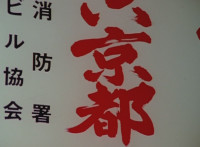 京都
消防署
ビル協会